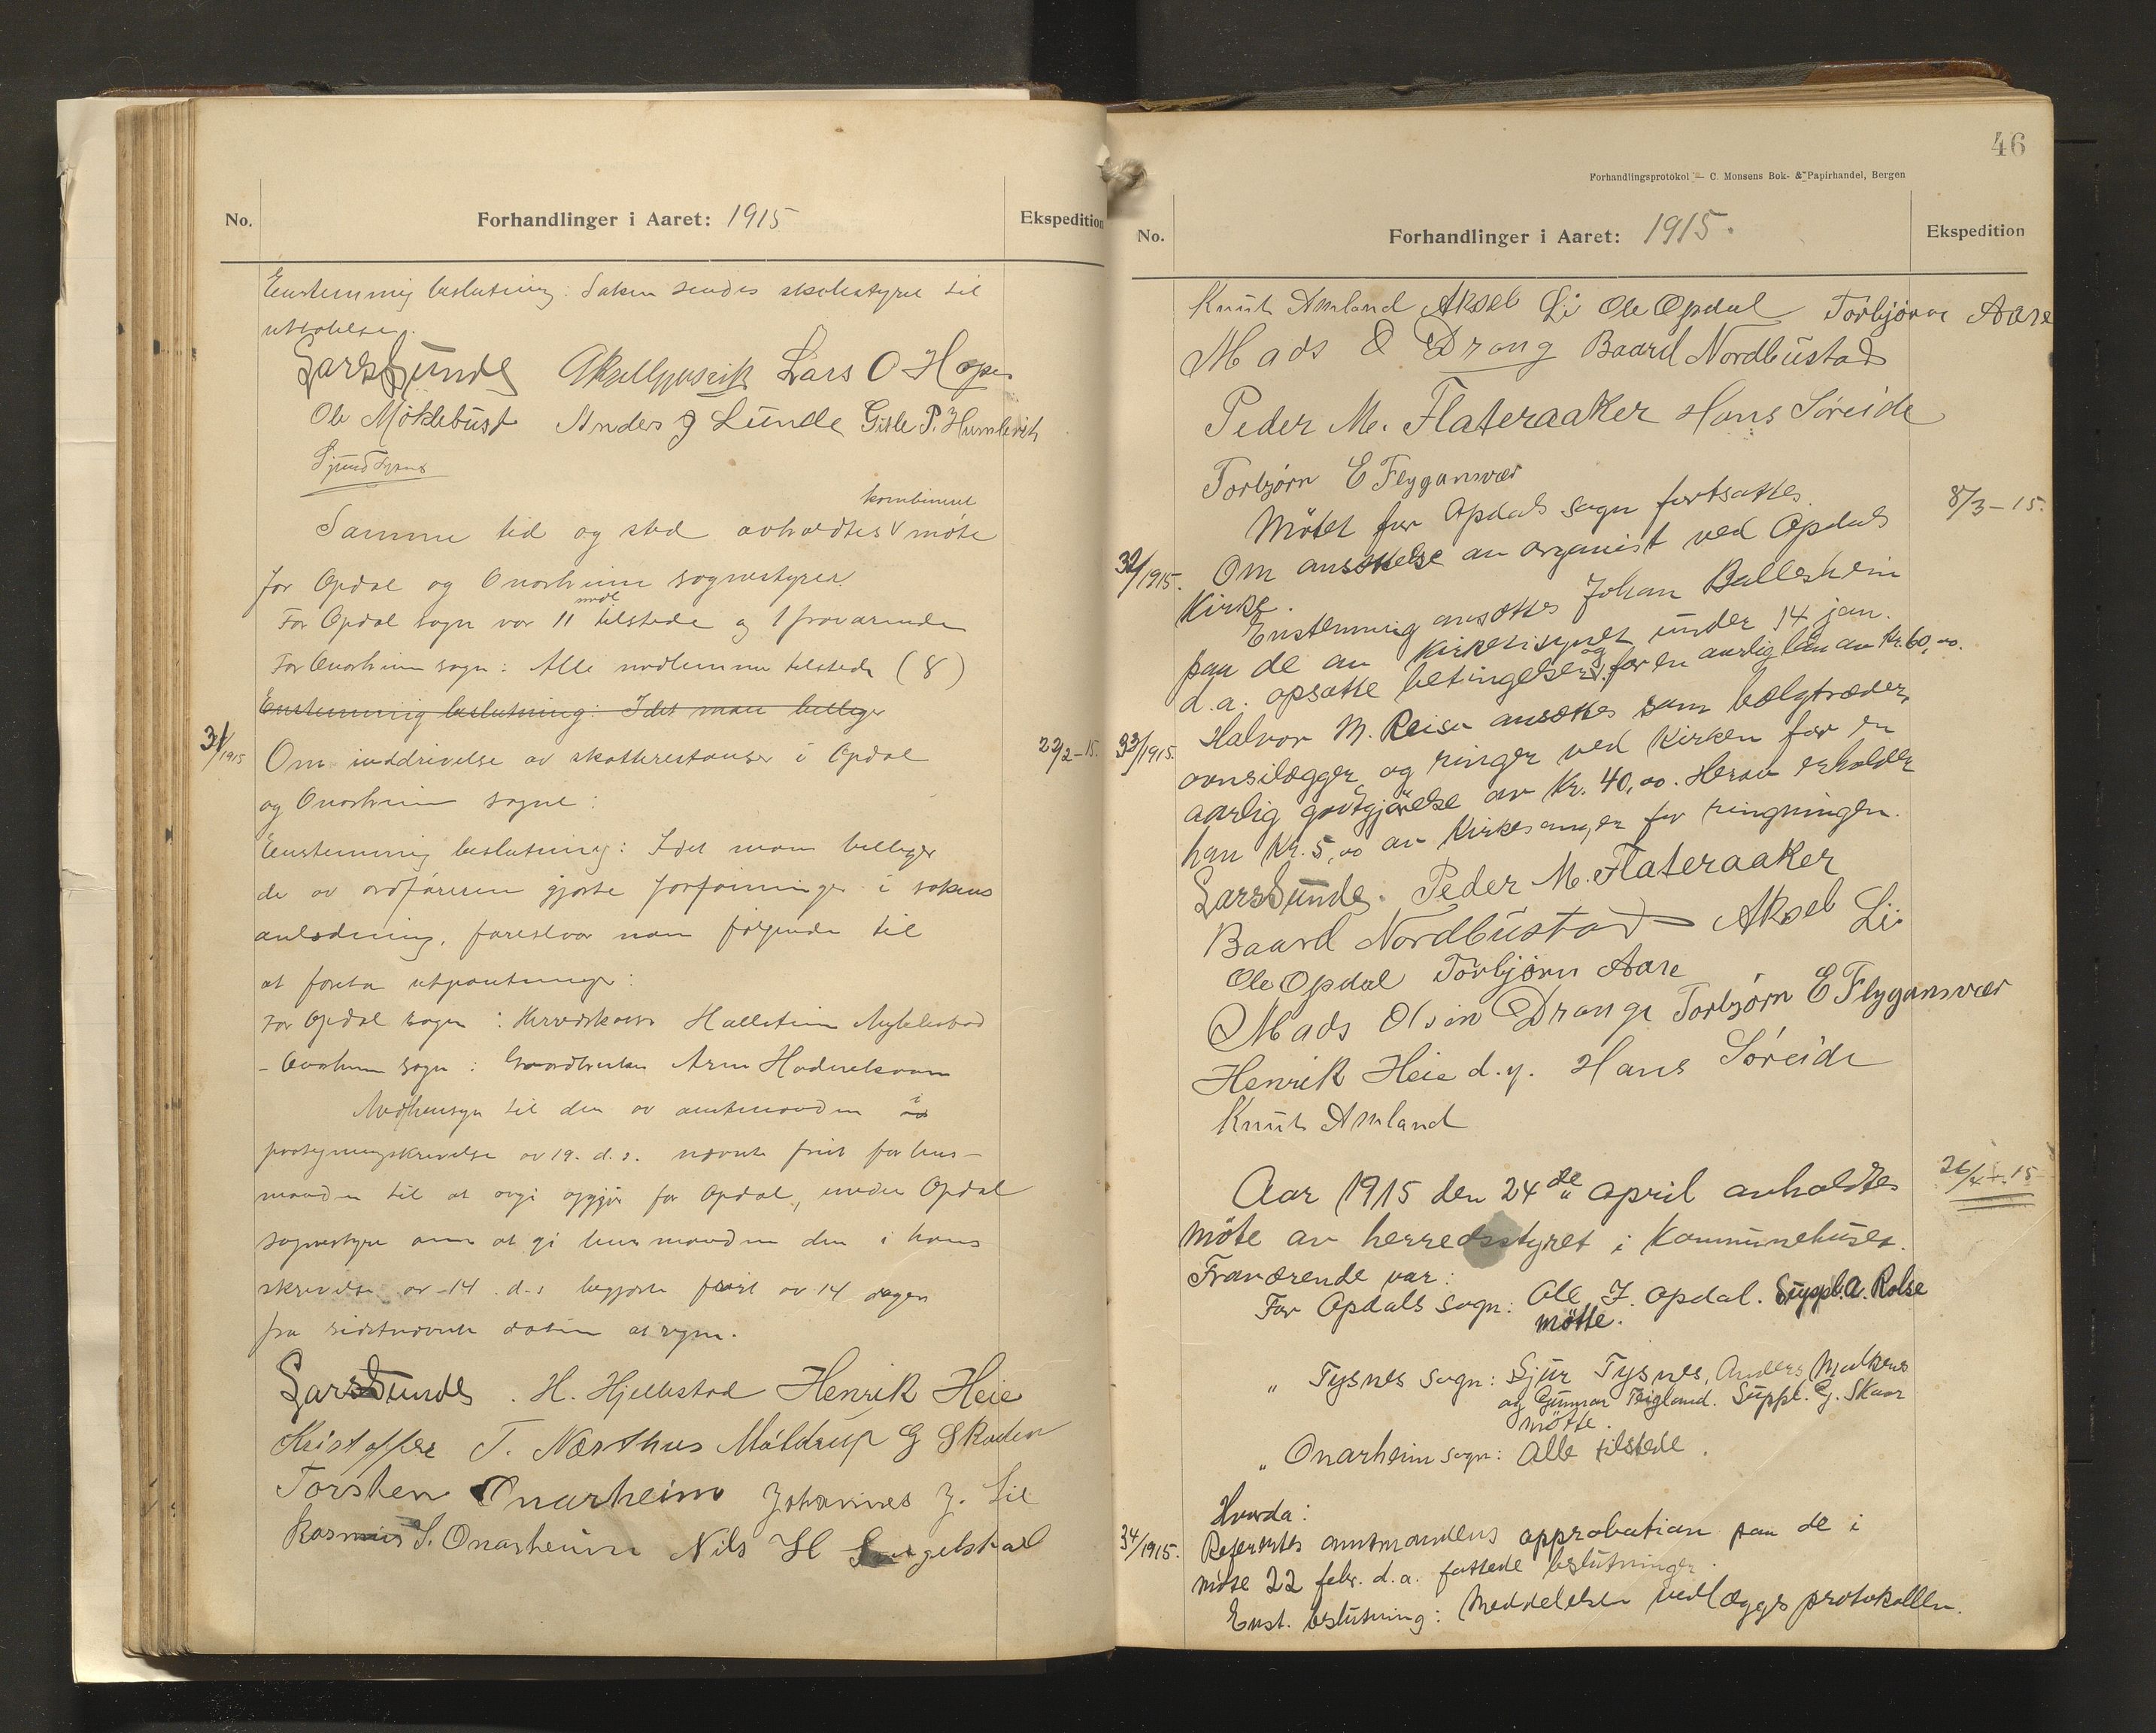 No.
Forhandlinger i Aaret: 1915
Ekspedition
Enstemmig beslutning: Saken sendes skolestyret til
uttalelse.
Lars Sunde Lars O Hope
Ole Møklebust Anders J Lunde Gisle P. Humlevik
Sjur Tysnes
kombinert
Samme tid og sted avholdtes v møte
for Opdal og Onarheim sognestyrer
medl
For Opdal sogn var 11 tilstede og 1 fraværende
For Onarheim sogn: Alle medlemmer tilstede (8)
Enstemmig beslutning: Idet man billiger
31/1915
Om inddrivelse av skatterestanser i Opdal
22/2-15.
og Onarheim sogne:
Enstemmig beslutning: Idet man billiger
de av ordføreren gjorte forføininger i sakens
anledning, foreslaar man følgende til
at foreta utpantninger:
For Opdal sogn: Hallstein
- Onarheim sogn: Gaardbruker Arne
Medhensyn til den av amtmanden i
paategningskrivelse av 19. d.s. nævnte frist for lens-
manden til at avgi opgjør for Opdal, under Opdal
sognestyre om at gi lensmanden den i hans
skrivelse av 14. d.s. begjærte frist av 14 dager
fra sidstnævnte datum at regne.
Lars Sunde. H. Hjellestad Henrik Heie
Kristoffer T. Næsthus Måldrup G Skaden
Torsten Onarheim Johannes J. Lie
Rasmus S. Onarheim Nils H
46
Forhandlingsprotokol — C. Monsens Bok- & Papirhandel, Bergen
No.
Forhandlinger i Aaret: 1915.
Ekspedition
Knut Amland Aksel Li Ole Opdal Torbjørn Aare
Mads O Drang Baard Nordbustad
Peder M. Flateraaker Hans Søreide
Torbjørn E Flygansvær
Møtet for Opdals sogn fortsattes.
8/3-15.
32/1915.
Om ansættelse av organist ved Opdals
Kirke.
Enstemmig ansættes Johan Ballesheim
paa de av kirketilsynet under 14 jan.
d.a. opsatte betingelser og for en aarlig løn av Kr. 60,00.
33/1915.
Halvor M. Reisa ansættes som bælgtræder,
ovnsilægger og ringer ved Kirken for en
aarlig godtgjørelse av Kr. 40,00. Herav erholder
han Kr. 5,00 av Kirkesanger for ringningen.
Lars Sunde. Peder M. Flateraaker
Baard Nordbustad Aksel Li
Ole Opdal Torbjørn Aare
Mads Olsen Drange Torbjørn E Flygansvær
Henrik Heie d.y. Hans Søreide
Knut Amland
Aar 1915 den 24de april avholdtes
26/4-15
møte av herredsstyret i Kommunehuset.
Fraværende var:
For Opdals sogn: Ole J. Opdal. Suppl. A. Rolse
møtte.
„ Tysnes sogn: Sjur Tysnes, Anders
og Gunnar Teigland. Suppl. G. Skaar
møtte.
„ Onarheim sogn: Alle tilstede.
Hvorda:
34/1915.
Refertes amtmandens approbation paa de i
møte 22 febr. d.a. fattede beslutninger.
Enst. beslutning: Meddelelsen vedlægges protokollen.